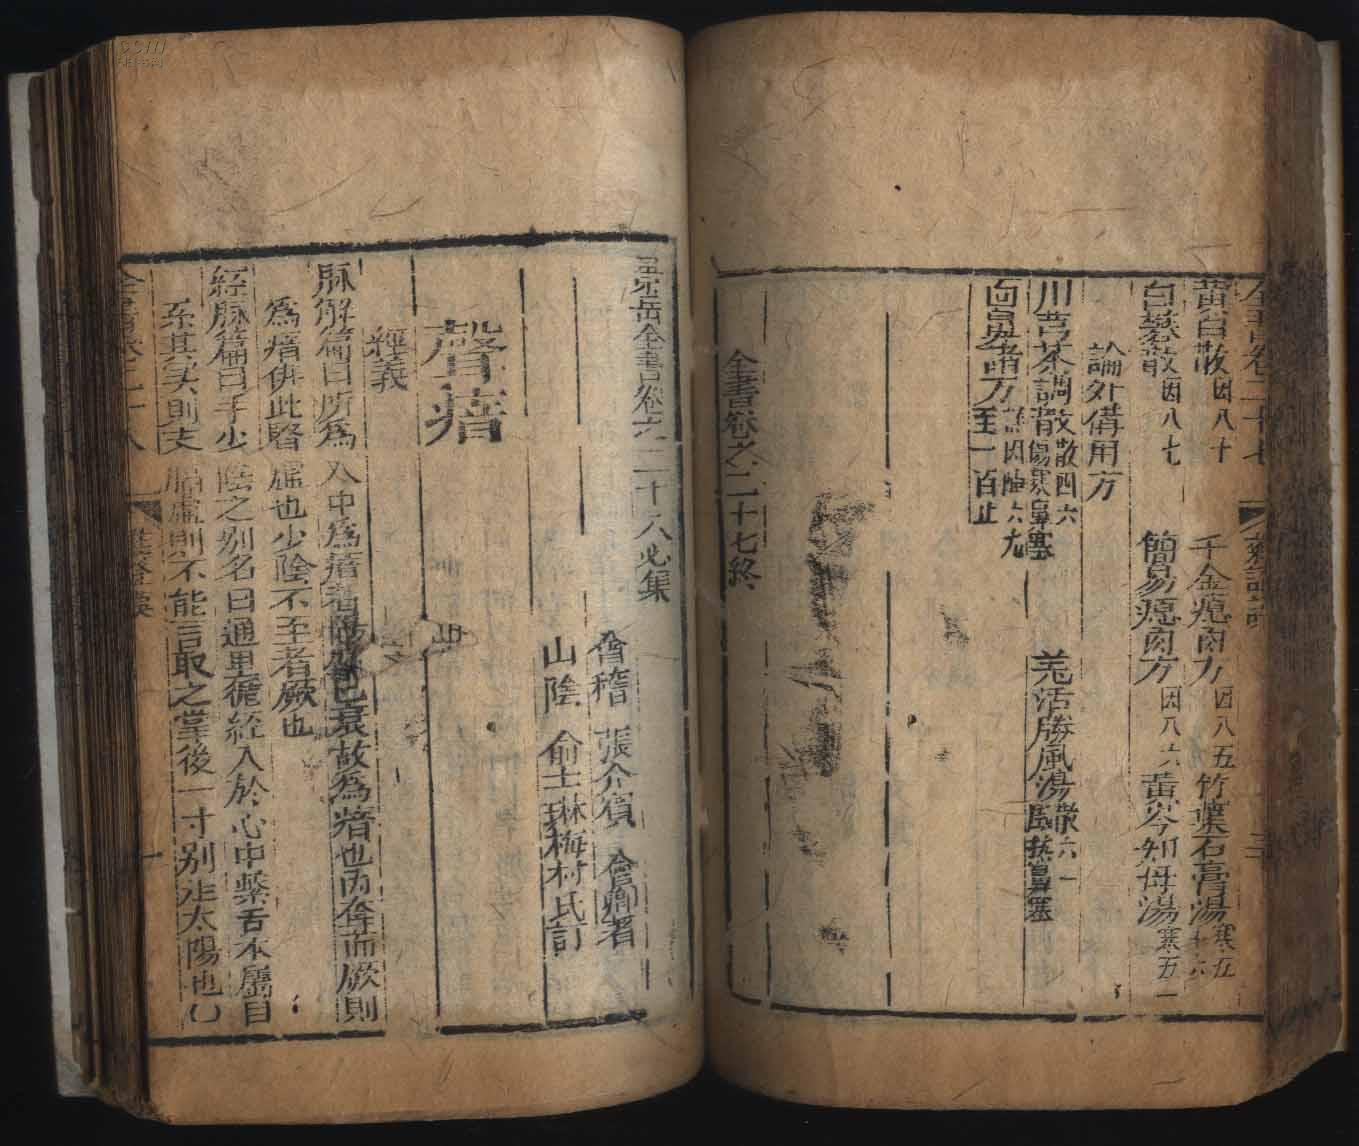 黃白散因八十　千金瘜肉方因八五　竹葉石膏湯寒五
白礬散因八七　簡易瘜肉方因八六　黃芩知母湯寒五一
論外備用方
川芎茶調散散四六　傷寒鼻塞　羗活勝風湯散六一　風熱鼻塞
面鼻諸方　至一百止
全書卷之二十七終
景岳全書卷之二十八必集
會稽　張介賓　會卿著
山陰　俞士琳梅村氏訂
聲瘖
經義
脉解篇曰所爲入中爲瘖者陽盛已衰故爲瘖也內奪而厥則
爲瘖俳此腎虛也少陰不至者厥也
經脉篇曰手少陰之別名曰通里循經入於心中繫舌本屬目
系其實則支膈虛則不能言取之掌後一寸別走太陽也